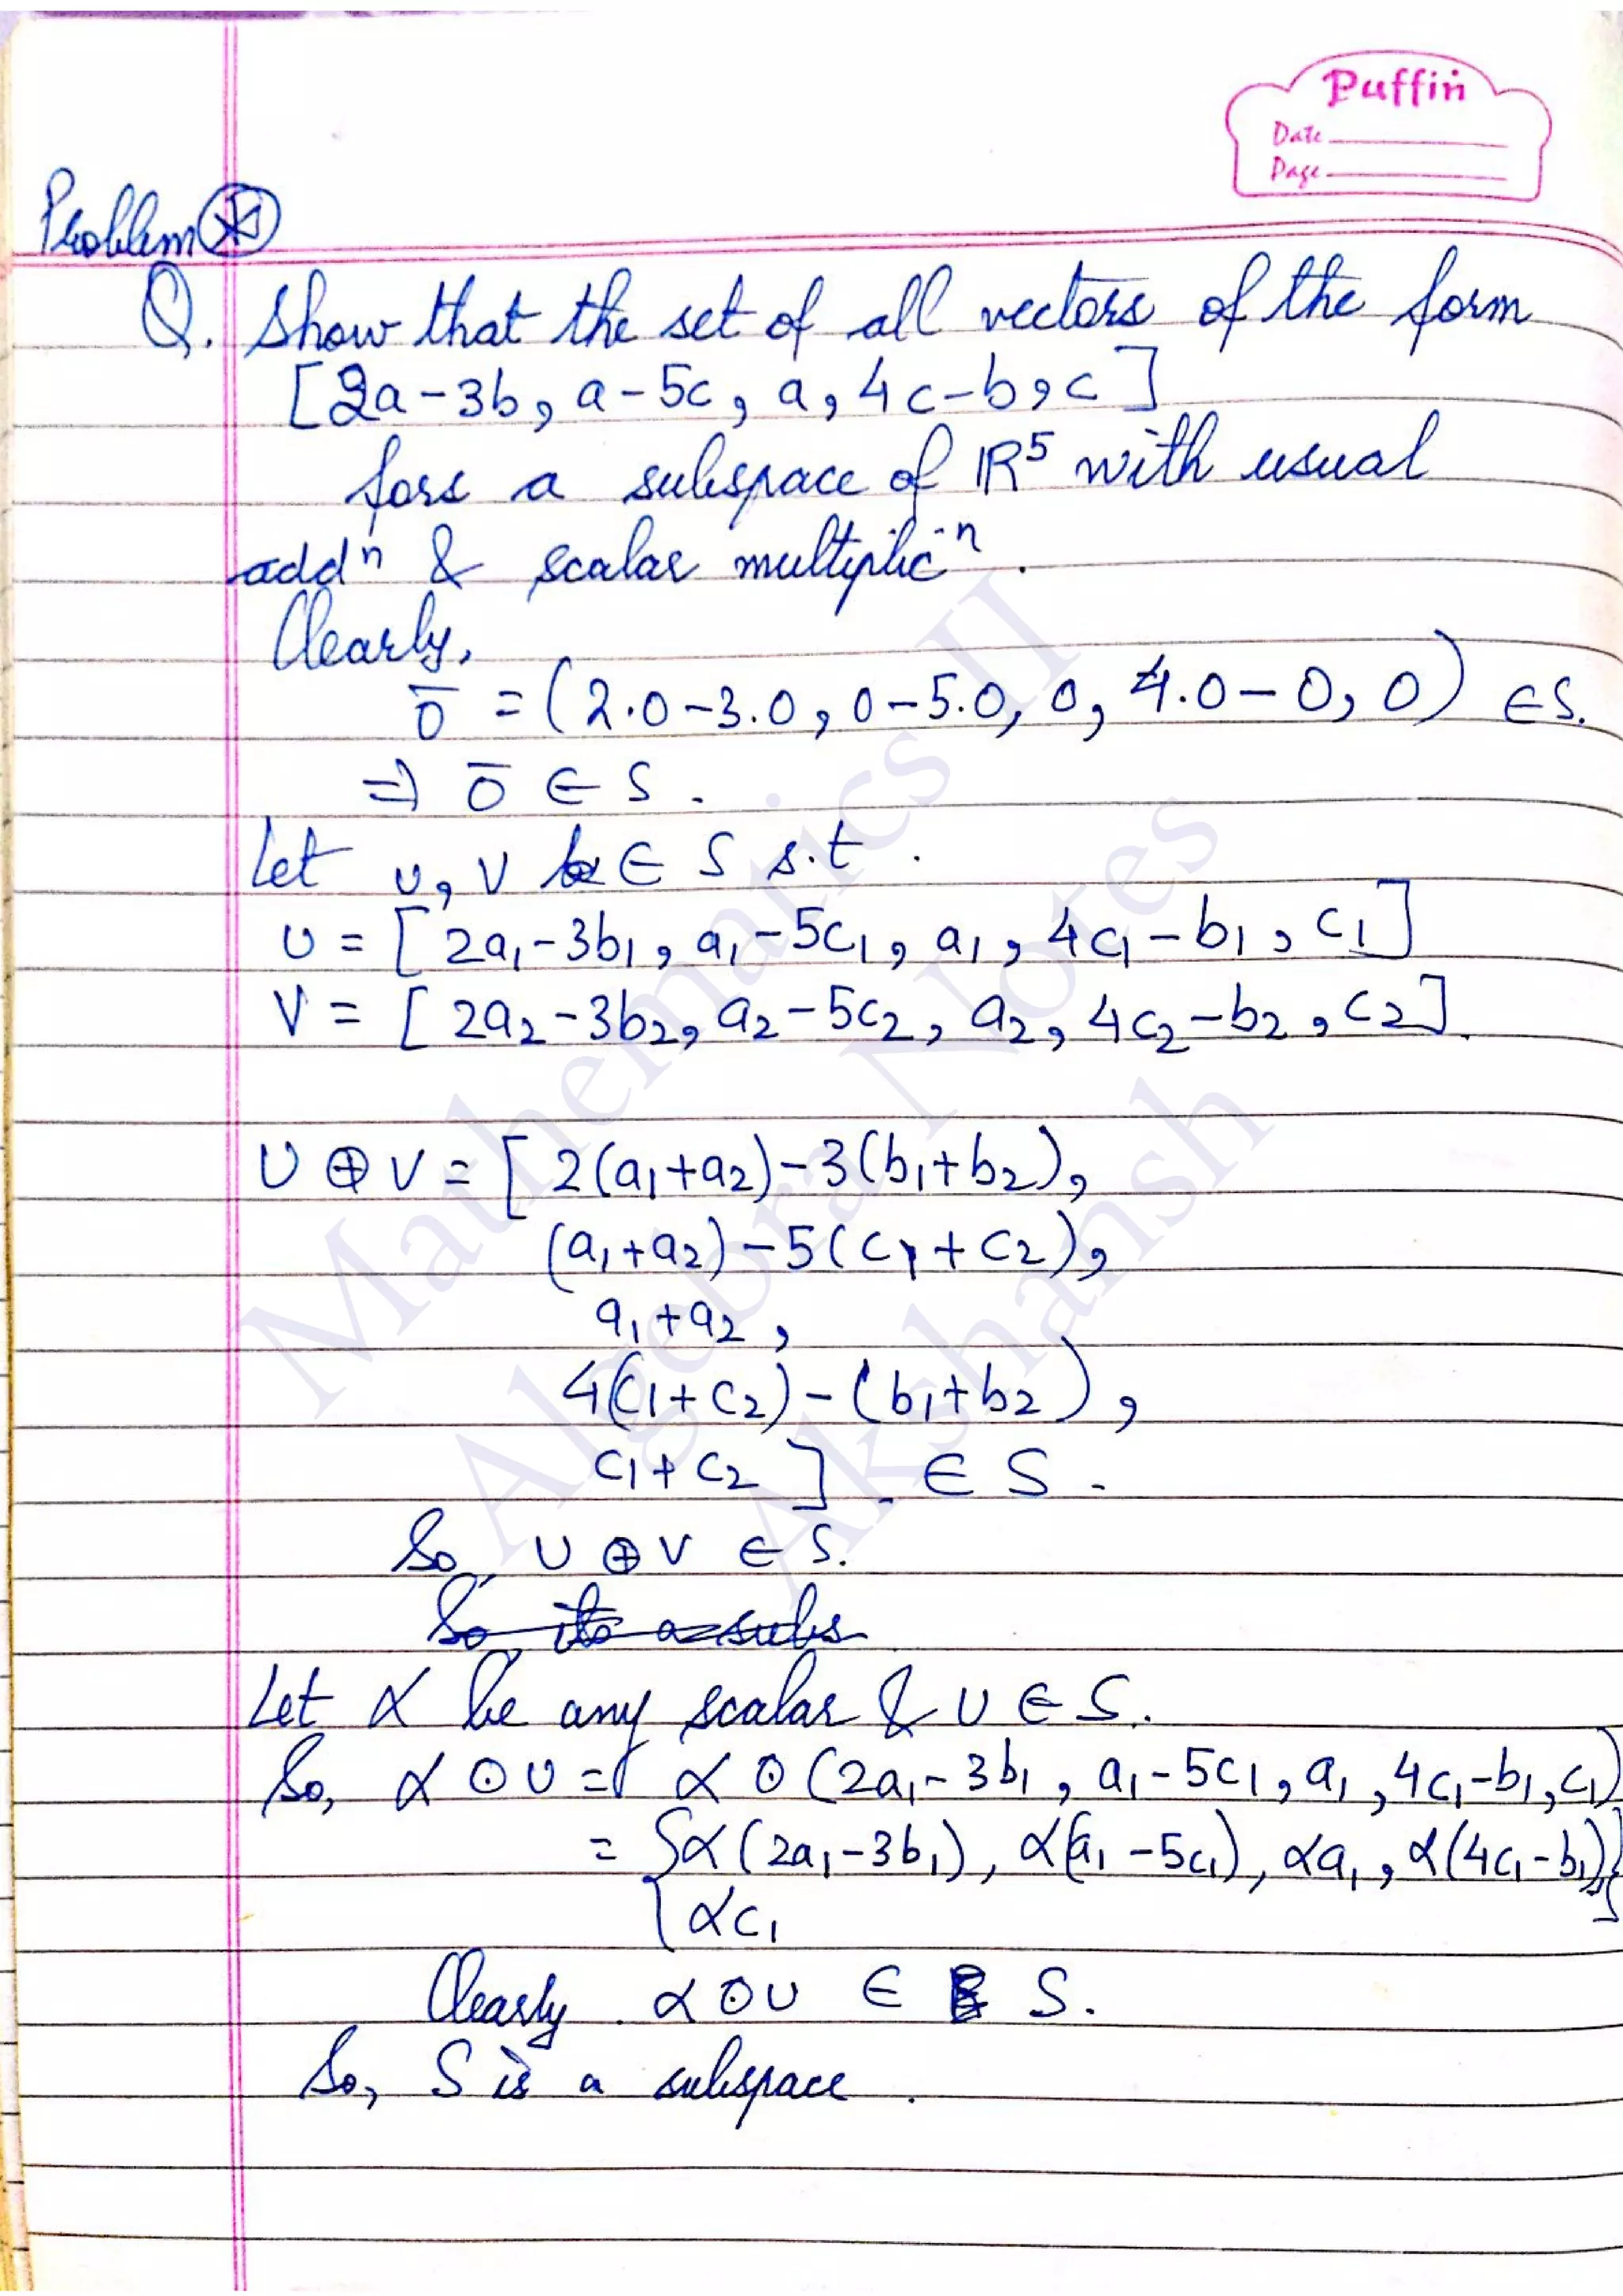 Puffin
Date
Page
Problem
Q. Show that the set of all vectors of the form
[2a-3b, a-5c, a, 4c-b, c]
fors a subspace of ℝ⁵ with usual
addⁿ & scalar multiplicⁿ.
Clearly,
0̅ = (2.0-3.0, 0-5.0, 0, 4.0-0, 0) ∈ S.
⇒ 0̅ ∈ S.
Let u, v ∈ S s.t.
U = [2a₁-3b₁, a₁-5c₁, a₁, 4c₁-b₁, c₁]
V = [2a₂-3b₂, a₂-5c₂, a₂, 4c₂-b₂, c₂].
U ⊕ V = [2(a₁+a₂)-3(b₁+b₂),
(a₁+a₂)-5(c₁+c₂),
a₁+a₂,
4(c₁+c₂)-(b₁+b₂),
c₁+c₂]. ∈ S.
So, U ⊕ V ∈ S.
So its a subs
Let α be any scalar & U ∈ S.
So, α ⊙ U = α ⊙ (2a₁-3b₁, a₁-5c₁, a₁, 4c₁-b₁, c₁)
= {α(2a₁-3b₁), α(a₁-5c₁), αa₁, α(4c₁-b₁),}
αc₁
Clearly α ⊙ U ∈ S.
So, S is a subspace.
Mathematics II
Algebra Notes
Akshansh